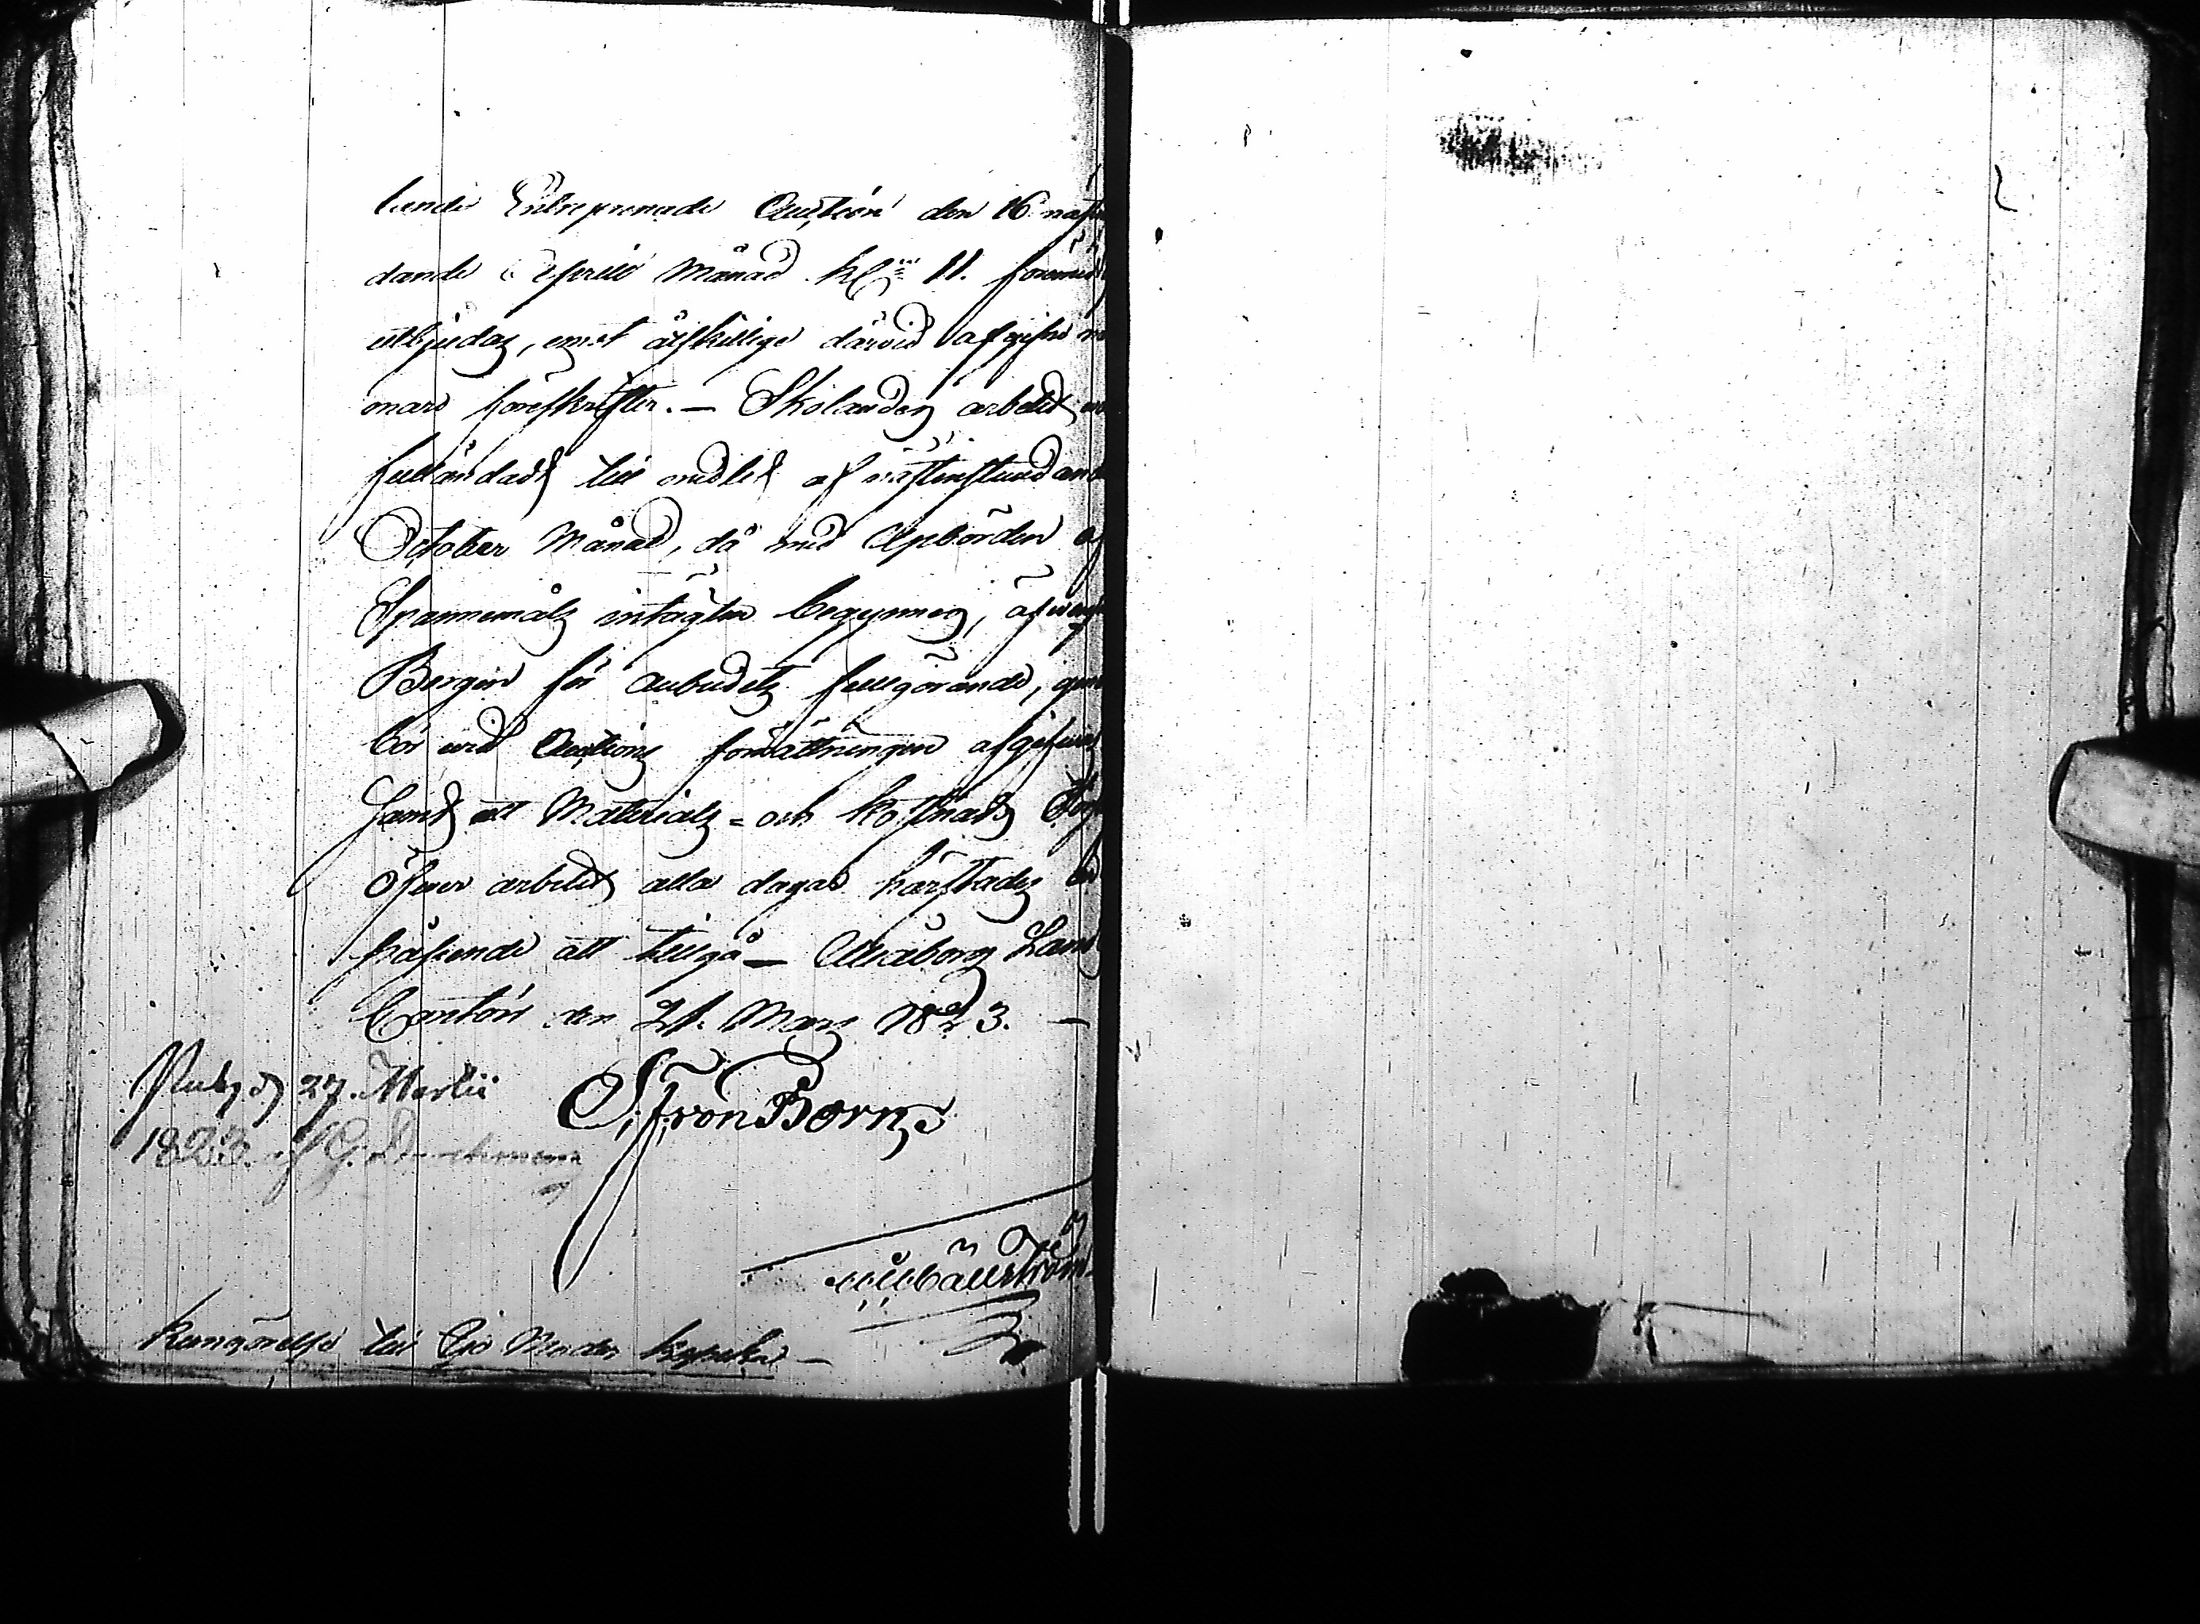 lande Entreprenade Auction den 16 näst
dande Aprill Månad kl. 11. förmid
utbjudas, emot åtskillige därvid afgifne
onare föreskrifter. — Skolandes arbetet
fulländadt till medlet af nästinstundan
October Månad, då med Upbörden af
Spannemåls intägten begynnes,
Borgen för anbudets fullgörande,
bör wid Auctions förrättningen afgifwas
Samt att Materials- och kostnads
öfwer arbetet alla dagar härstädes
att tillgå — Uleåborgs Lands
Contoir den 21. Mars 1823. —
Publ. d. 27. Martii
1823. af G.
S. F. von Born
Kungörelse till Ijo Moder kyrka —